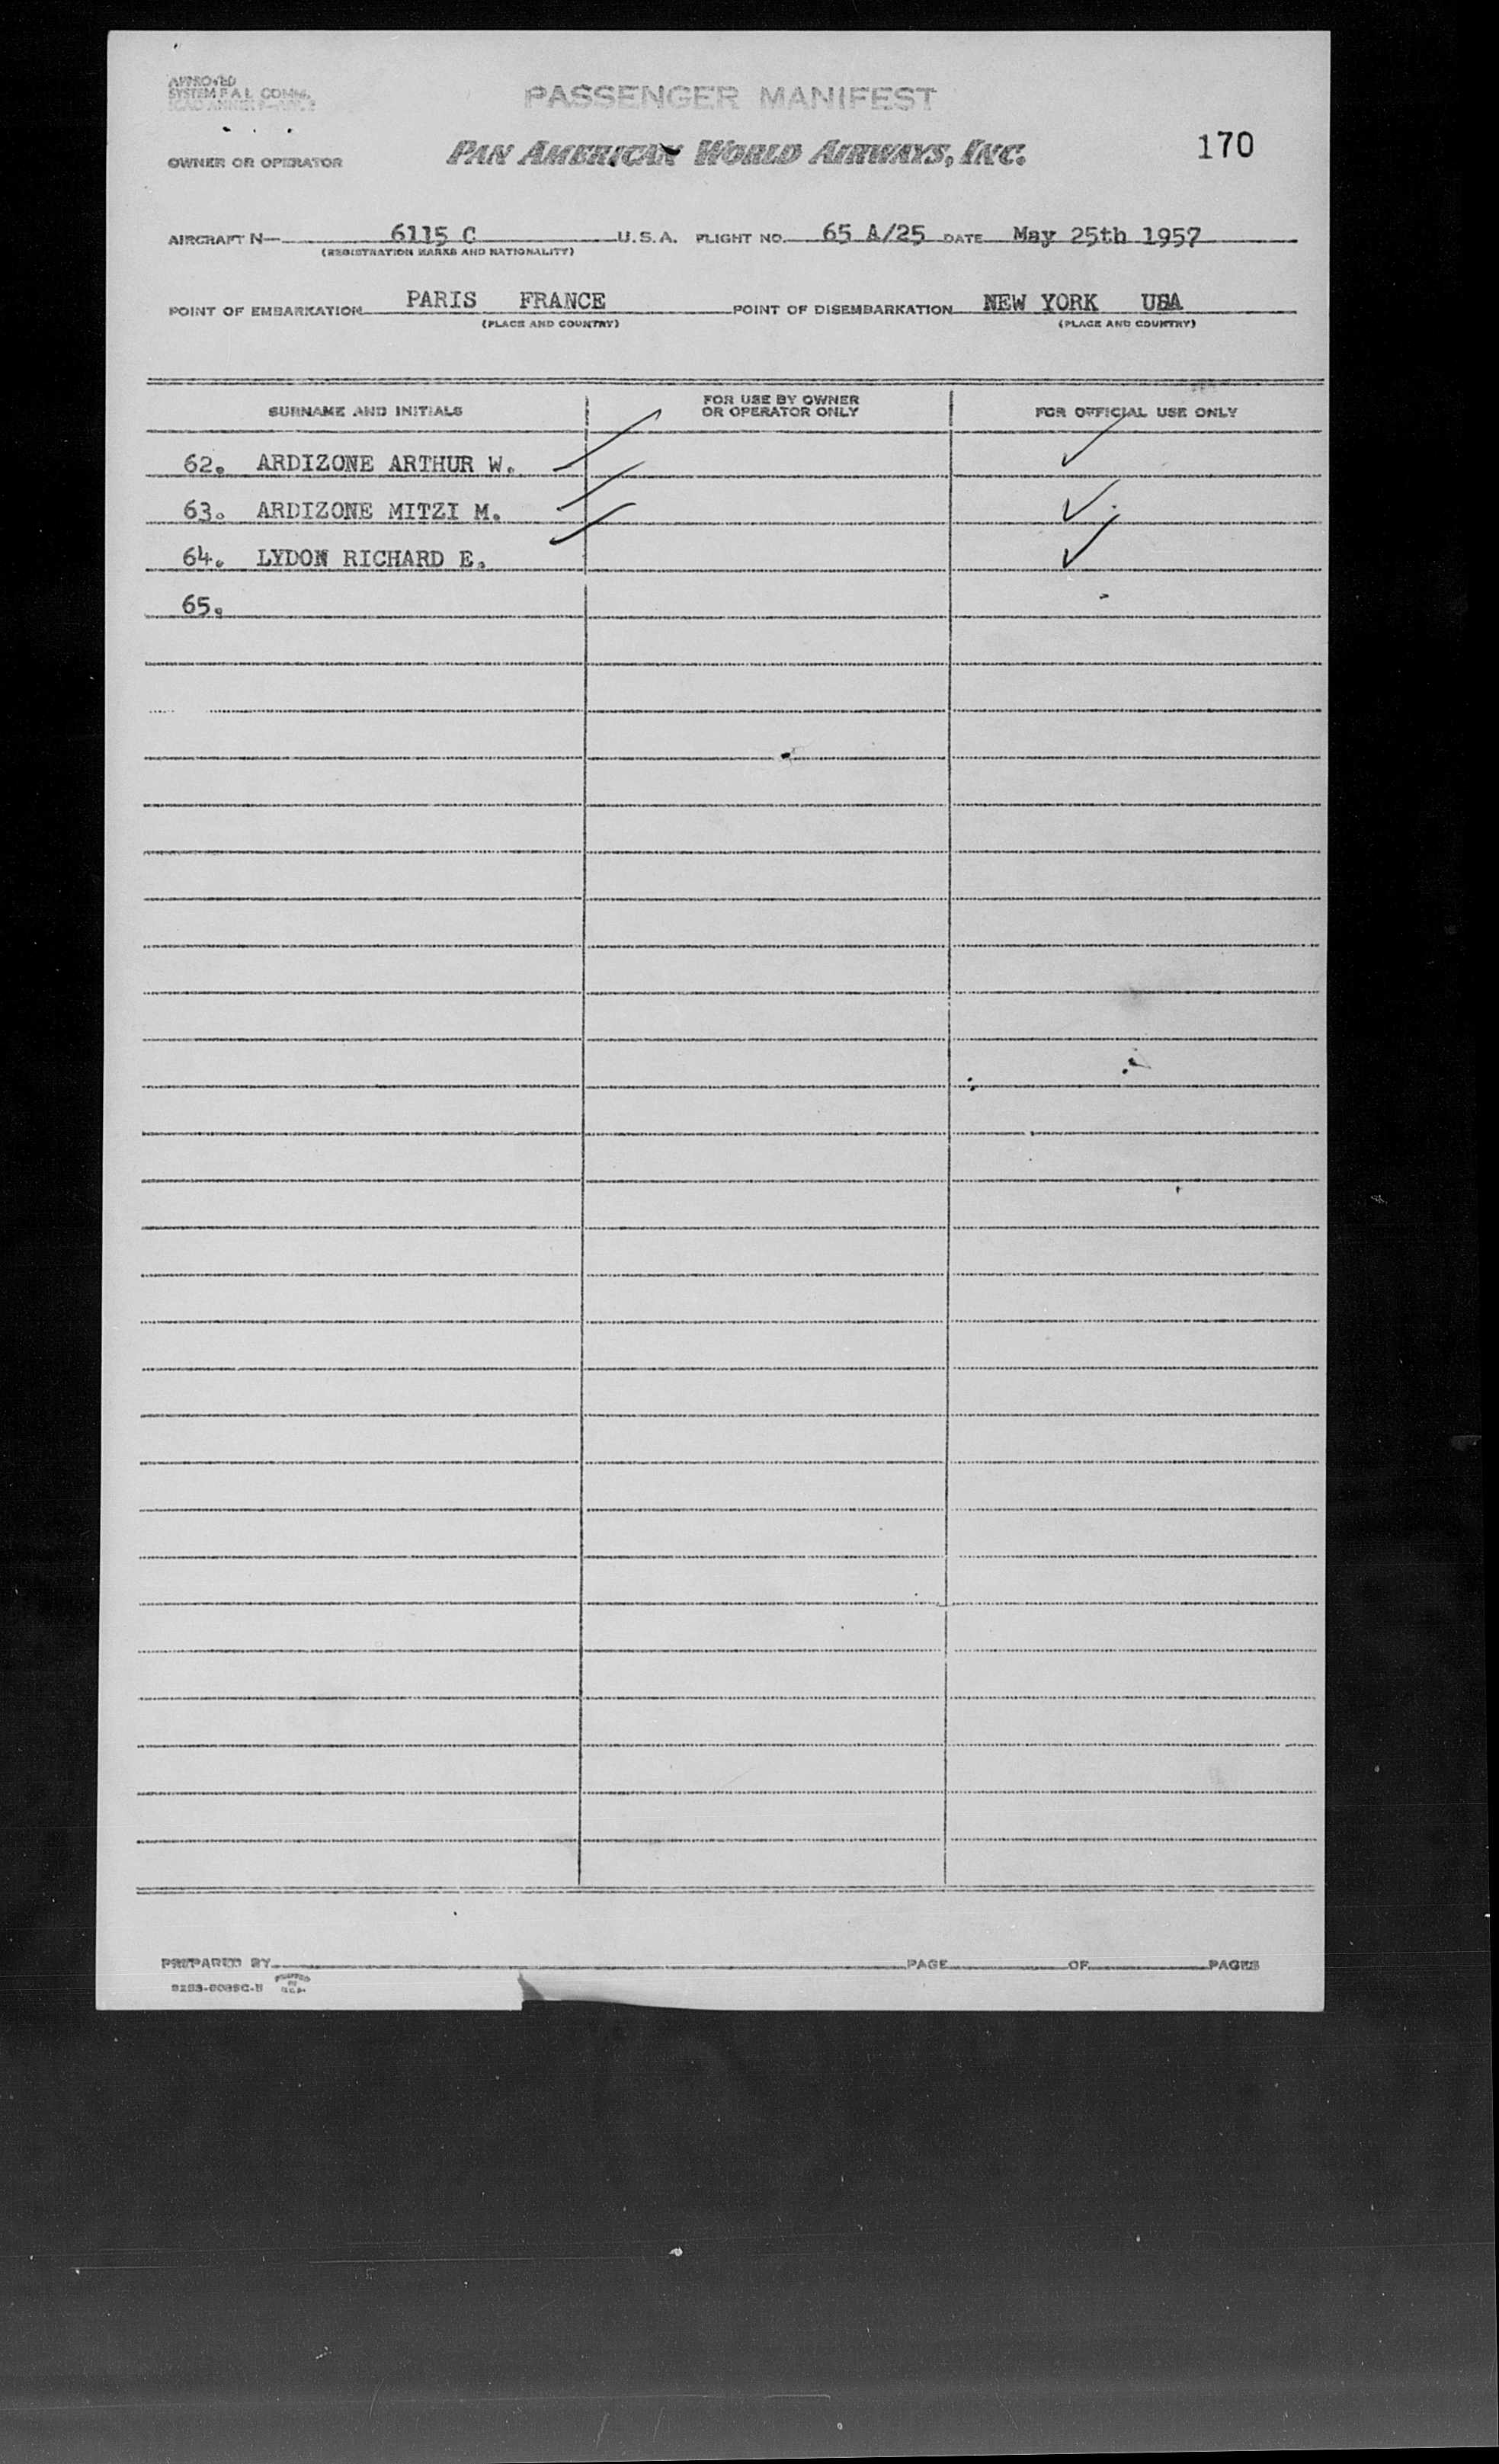 APPROVED
SYSTEM F A L COMM.
PASSENGER MANIFEST
OWNER OR OPERATOR PAN AMERICAN WORLD AIRWAYS, INC. 170
AIRCRAFT N— 6115 C U.S.A. FLIGHT NO. 65 A/25 DATE May 25th 1957
(REGISTRATION MARKS AND NATIONALITY)
POINT OF EMBARKATION PARIS FRANCE POINT OF DISEMBARKATION NEW YORK USA
(PLACE AND COUNTRY) (PLACE AND COUNTRY)
SURNAME AND INITIALS FOR USE BY OWNER OR OPERATOR ONLY FOR OFFICIAL USE ONLY
62. ARDIZONE ARTHUR W.
63. ARDIZONE MITZI M.
64. LYDON RICHARD E.
65.
PREPARED BY PAGE OF PAGES
PRINTED IN U.S.A.